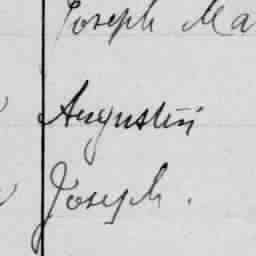 Joseph Ma
Augustin
Joseph.